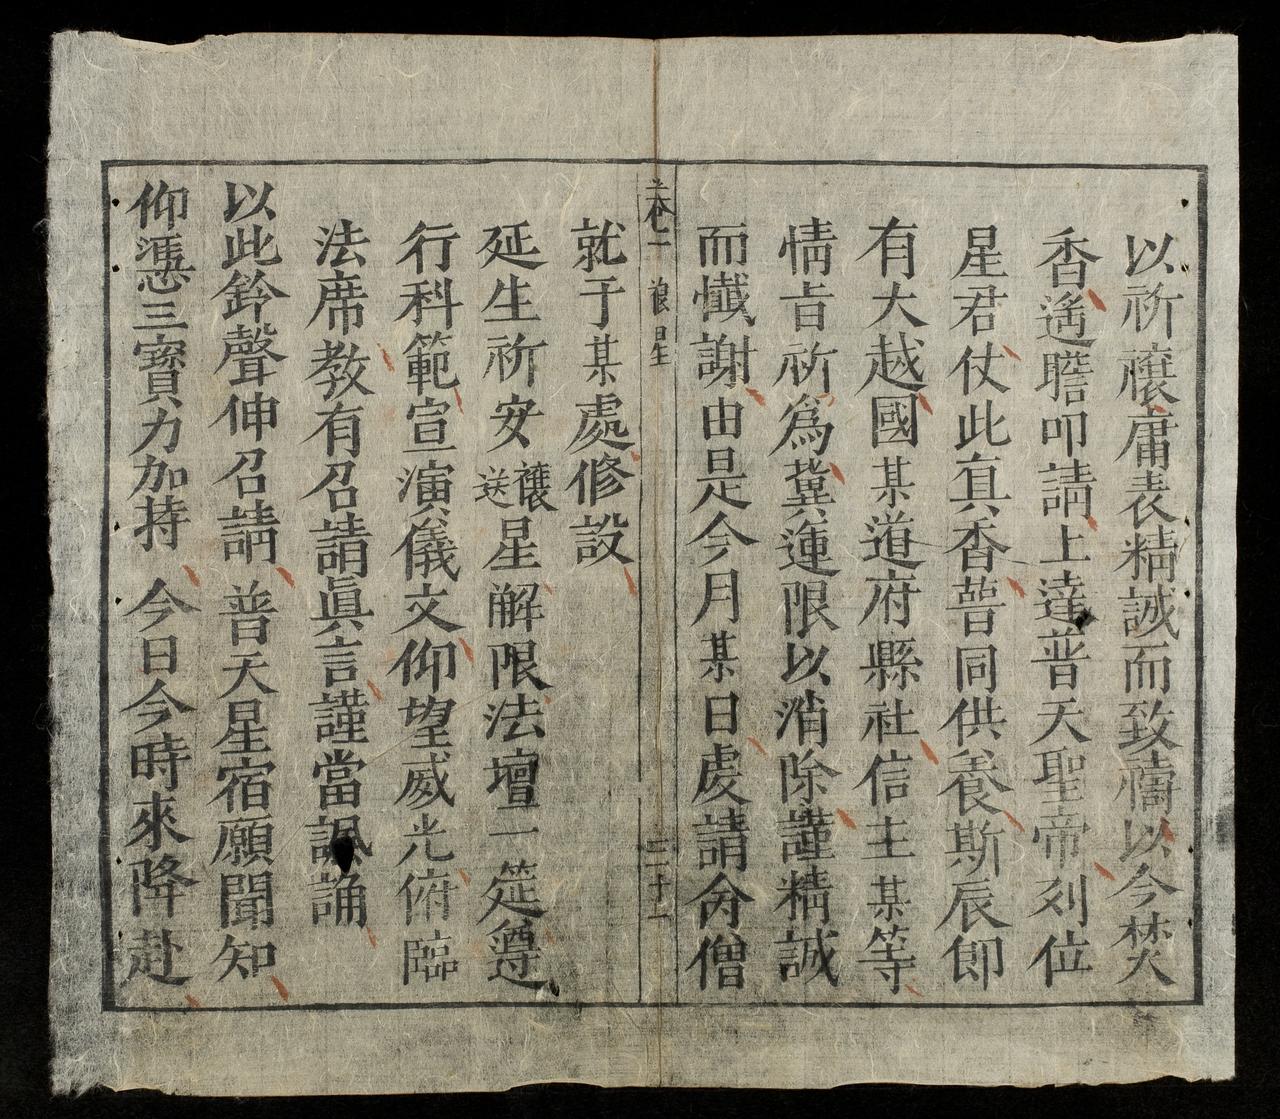 以祈禳庸表精誠而致禱以今焚
香遙瞻叩請上達普天聖帝列位
星君仗此真香普同供養斯辰卽
有大越國某道府縣社信主某等
情旨祈爲冀運限以消除謹精誠
而懴謝由是今月某日虔請僉僧
卷一 禳星 二十一
就于某處修設
延生祈安禳送星解限法壇一筵遵
行科範宣演儀文仰望威光俯臨
法席教有召請眞言謹當諷誦
以此鈴聲伸召請 普天星宿願聞知
仰憑三寶力加持 今日今時來降赴